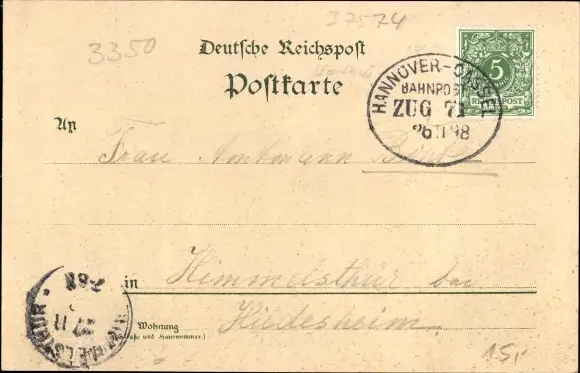 37574
3350
Deutsche Reichspost
Postkarte
5
REICHSPOST
HANNOVER-CASSEL
BAHNPOST
ZUG 71
26 11 98
An
Frau Amtmann
in Himmelsthür bei
Wohnung
(Straße und Hausnummer)
Hildesheim.
HIMMELSTHÜR
27 11
7-8N
15,-